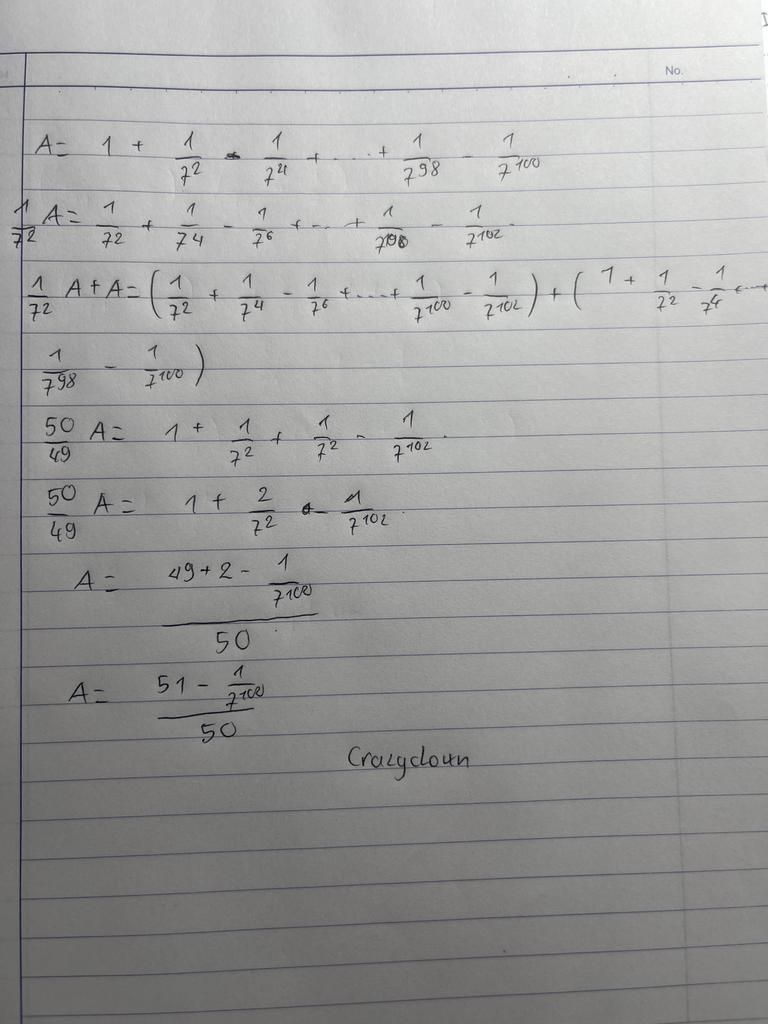 No.
A = 1 + 1/7^2 - 1/7^4 + ... + 1/7^98 - 1/7^100
1/7^2 A = 1/7^2 + 1/7^4 - 1/7^6 + ... + 1/7^100 - 1/7^102.
1/7^2 A + A = (1/7^2 + 1/7^4 - 1/7^6 + ... + 1/7^100 - 1/7^102) + (1 + 1/7^2 - 1/7^4 + ... +
1/7^98 - 1/7^100)
50/49 A = 1 + 1/7^2 + 1/7^2 - 1/7^102.
50/49 A = 1 + 2/7^2 - 1/7^102.
A = (49 + 2 - 1/7^100)/50
A = (51 - 1/7^100)/50
Crazyclown